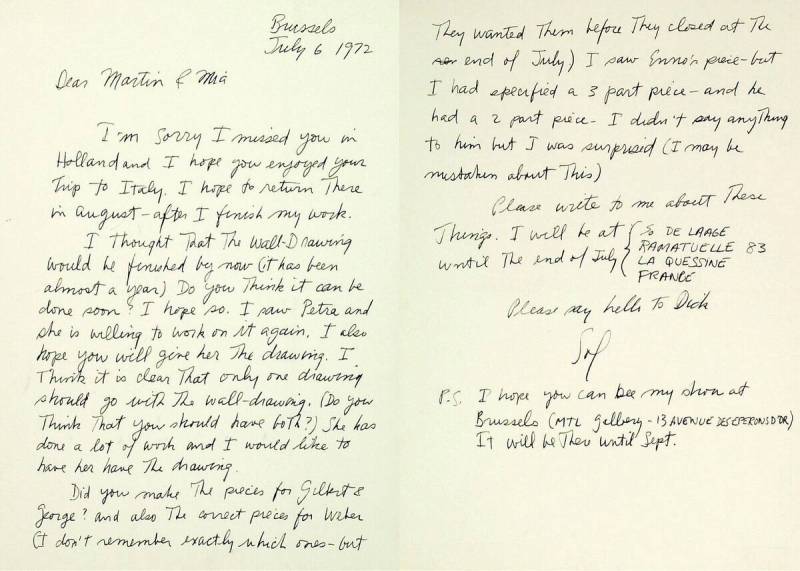 Brussels
July 6 1972
Dear Martin & Mia
I'm sorry I missed you in
Holland and I hope you enjoyed your
Trip to Italy. I hope to return There
in August - after I finish my work.
I thought That The Wall-Drawing
would be finished by now (it has been
almost a year) Do you Think it can be
done soon? I hope so. I saw Petra and
she is willing to work on it again. I also
hope you will give her The drawing. I
Think it is clear That only one drawing
should go with The wall-drawing. (Do you
Think That you should have both?) She has
done a lot of work and I would like to
have her have The drawing.
Did you make The pieces for Gilbert &
George? and also The correct pieces for Weber
(I don't remember exactly which ones - but
They wanted Them before They closed at The
end of July) I saw Enno's piece - but
I had specified a 3 part piece - and he
had a 2 part piece - I didn't say anyThing
to him but I was surprised (I may be
mistaken about This)
Please write to me about These
Things. I will be at
until The end of July
% DE LAAGE
RAMATUELLE 83
LA QUESSINE
FRANCE
Please say hello to Dick
Sol
P.S. I hope you can see my show at
Brussels (MTL gallery - 13 AVENUE DES EPERONS D'OR)
It will be There until Sept.